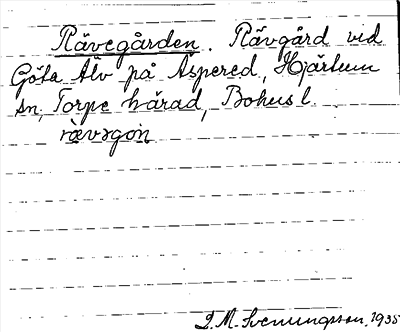 Rävegården. Rävgård vid
Göta Älv på Aspered, Hjärtum
sn, Torpe härad, Bohusl.
rævəgoɳ
J. M. Svenungsson, 1935